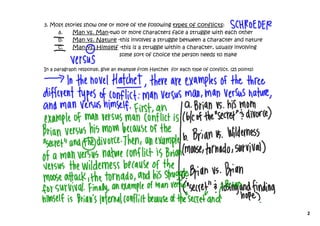 3. Most stories show one or more of the following types of conflicts: SCHROEDER
a. Man vs. Man-two or more characters face a struggle with each other
b. Man vs. Nature -this involves a struggle between a character and nature
c. Man vs. Himself -this is a struggle within a character, usually involving
some sort of choice the person needs to make
versus
In a paragraph response, give an example from Hatchet for each type of conflict. (25 points)
In the novel Hatchet, there are examples of the three
different types of conflict: man versus man, man versus nature,
and man versus himself. First, an
example of man versus man conflict is
Brian versus his mom because of the
"secret" and the divorce. Then, an example
of a man versus nature conflict is Brian
versus the wilderness because of the
moose attack, the tornado, and his struggle
for survival. Finally, an example of man versus
himself is Brian's internal conflict because of the "secret" and
a. Brian vs. his mom
(b/c of the "secret" & divorce)
b. Brian vs. Wilderness
(moose, tornado, survival)
c. Brian vs. Brian
("secret" & losing and finding
hope)
2